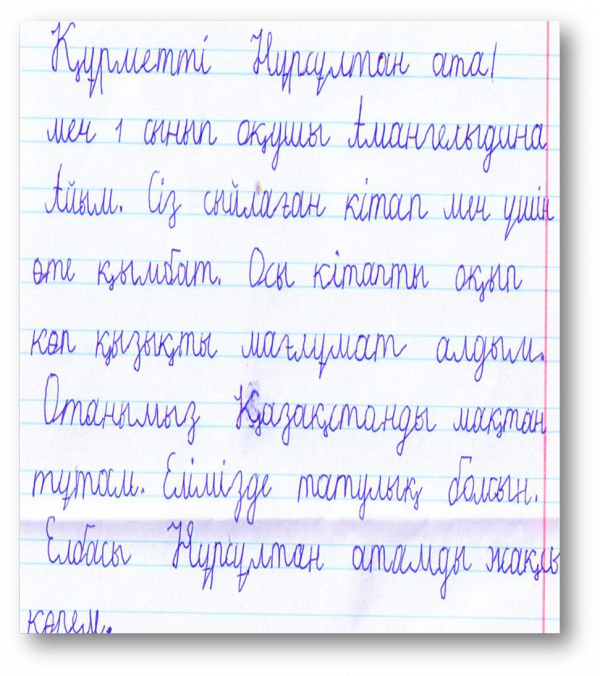 Құрметті Нұрсұлтан ата!
мен 1 сынып оқушы Амангелыдина
Айым. Сіз сыйлаған кітап мен үшін
өте қымбат. Осы кітапты оқып
көп қызықты мағлұмат алдым.
Отанымыз Қазақстанды мақтан
тұтам. Елімізде татулық болсын.
Елбасы Нұрсұлтан атамды жақсы
көрем.